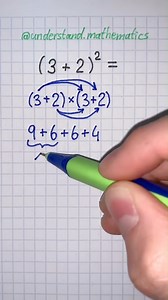 @understand.mathematics
(3+2)² =
(3+2)×(3+2)
9+6+6+4